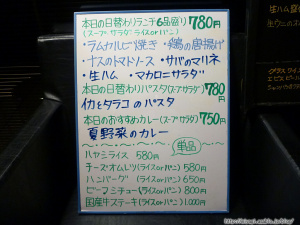 本日の日替わりランチ6品盛り780円
(スープ・サラダ・ライスorパン)
・ラムカルビー焼き・鶏の唐揚げ
・ナスのトマトソース・サバのマリネ
・生ハム・マカロニサラダ
本日の日替わりパスタ(スープ・サラダ)780円
イカとタラコのパスタ
本日のおすすめカレー(スープ・サラダ)750円
夏野菜のカレー
単品
ハヤシライス 580円
チーズオムレツ(ライスorパン)580円
ハンバーグ(ライスorパン)650円
ビーフシチュー(ライスorパン)800円
国産牛ステーキ(ライスorパン)1,000円
生ハム
グラスワイン